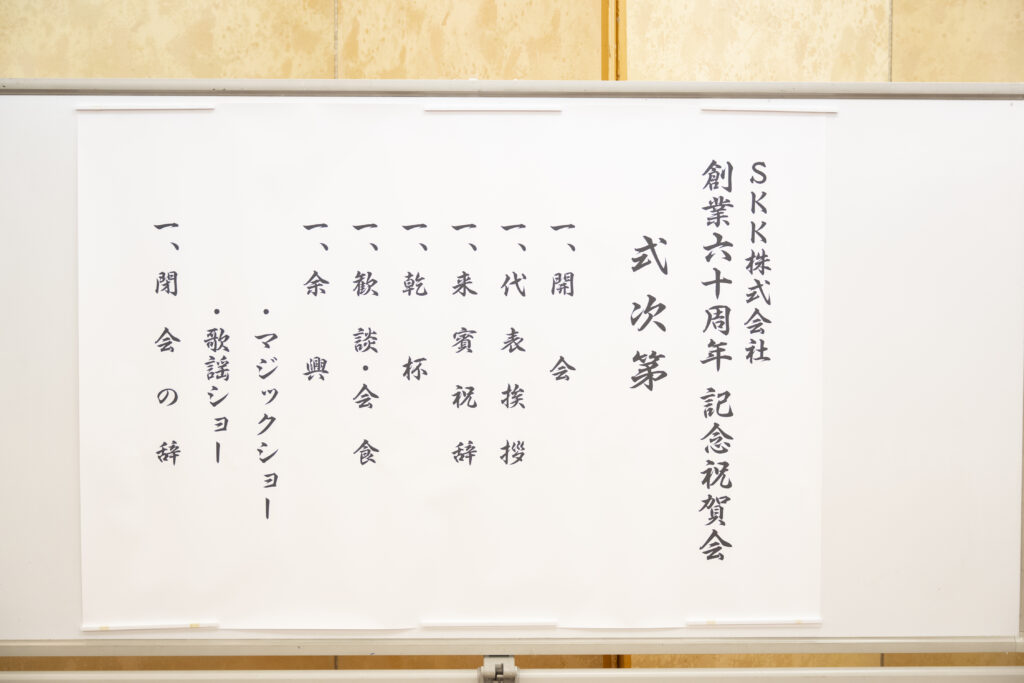 SKK株式会社
創業六十周年 記念祝賀会
式次第
一、開会
一、代表挨拶
一、来賓祝辞
一、乾杯
一、歓談・会食
一、余興
・マジックショー
・歌謡ショー
一、閉会の辞